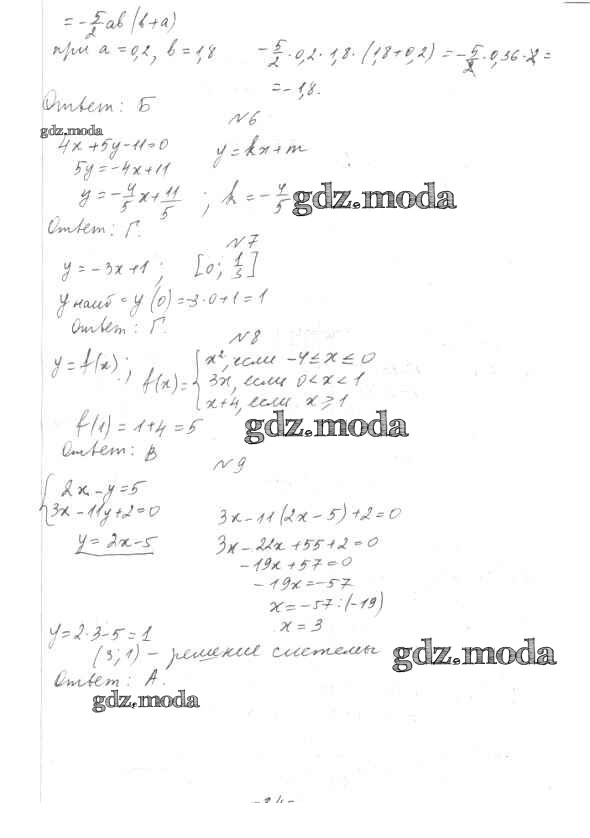 = -5/2 ab (b+a)
при a = 0,2, b = 1,8    -5/2 · 0,2 · 1,8 · (1,8+0,2) = -5/2 · 0,36 · 2 =
= -1,8.
Ответ: Б
№6
gdz.moda
4x+5y-11=0    y = kx+m
5y = -4x+11
y = -4/5 x + 11/5 ; k = -4/5
gdz.moda
Ответ: Г.
№7
y = -3x+1 ; [0; 1/3]
y наиб = y(0) = -3·0+1 = 1
Ответ: Г.
№8
y = f(x) ; f(x) = { x², если -4 ≤ x ≤ 0
3x, если 0 < x < 1
x+4, если x ≥ 1
f(1) = 1+4 = 5
gdz.moda
Ответ: В
№9
{ 2x - y = 5
3x - 11y + 2 = 0    3x - 11(2x - 5) + 2 = 0
y = 2x-5    3x - 22x + 55 + 2 = 0
-19x + 57 = 0
-19x = -57
x = -57 : (-19)
x = 3
y = 2·3-5 = 1
(3; 1) - решение системы
gdz.moda
Ответ: А.
gdz.moda